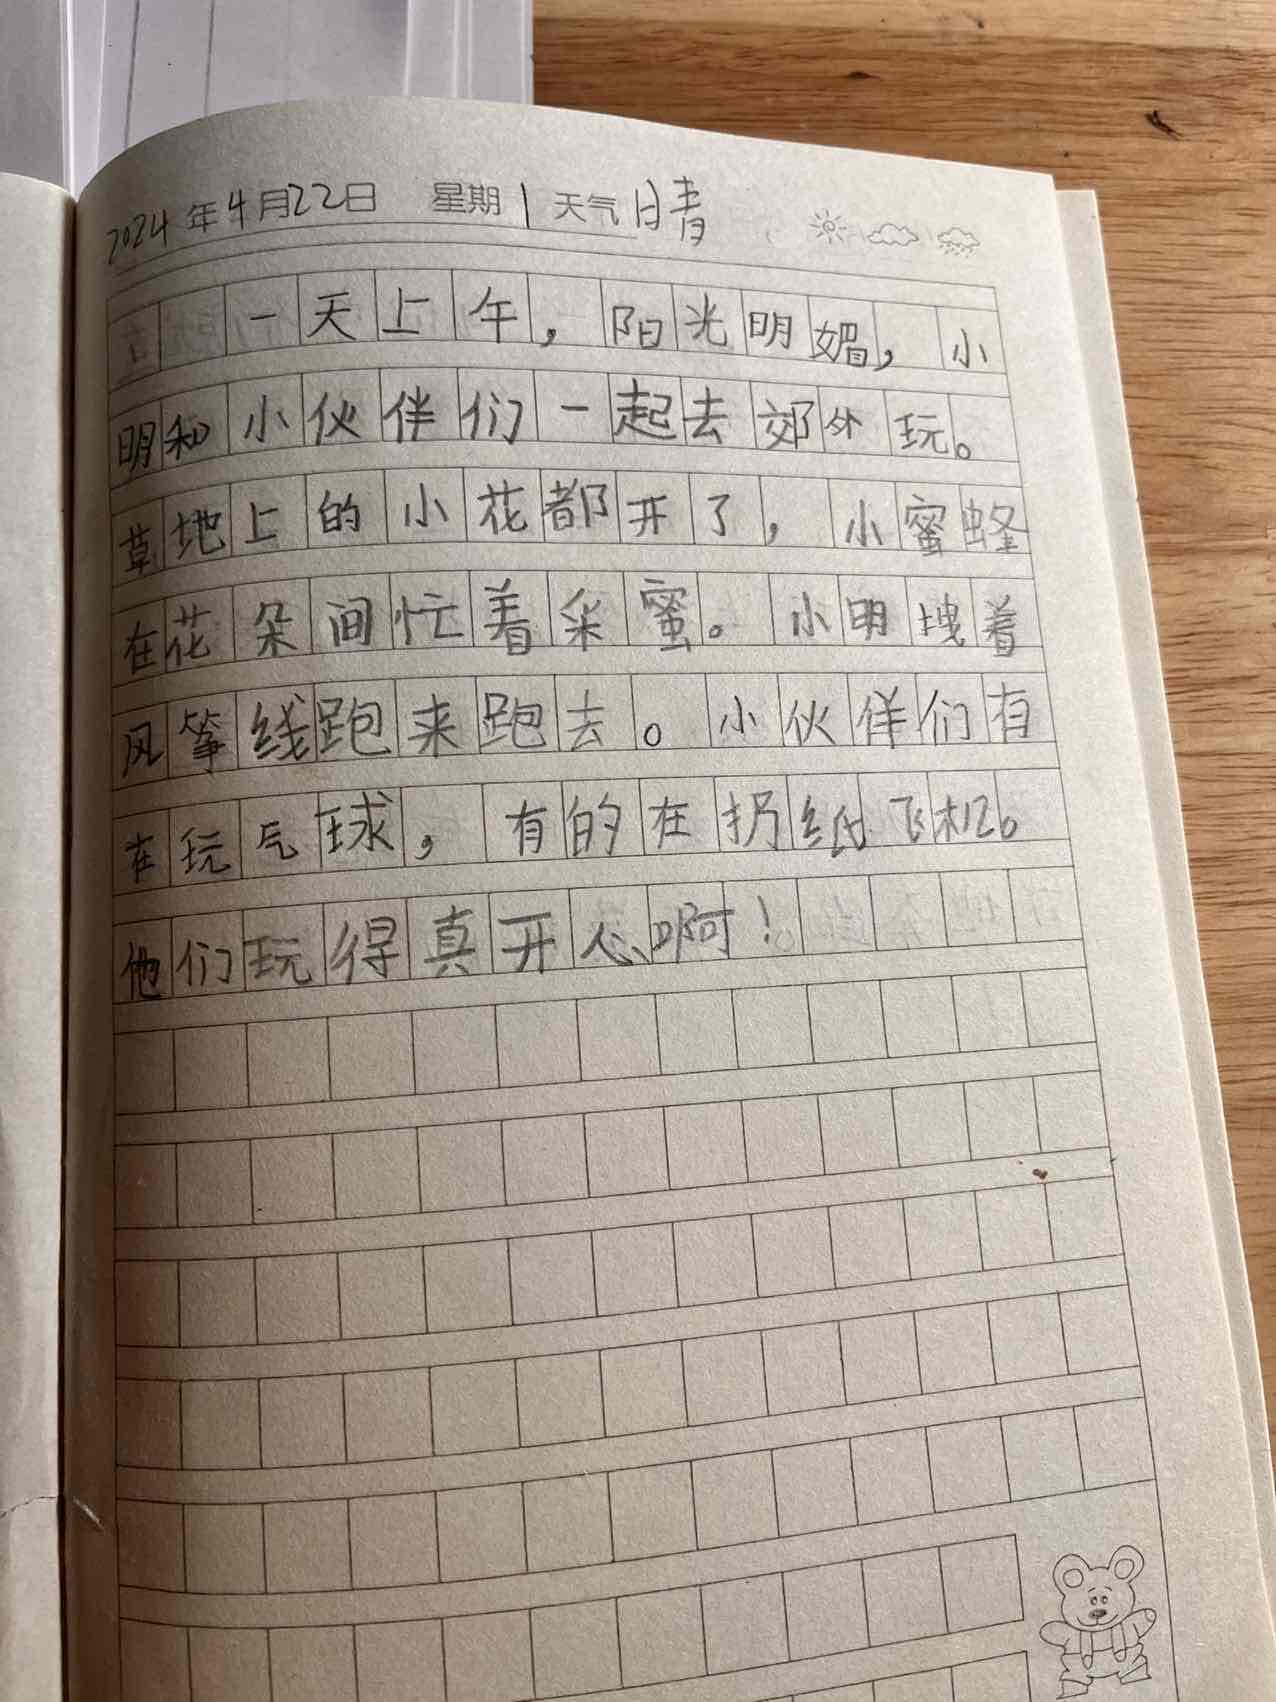 2024年4月22日 星期1 天气晴
一天上午，阳光明媚，小
明和小伙伴们一起去郊外玩。
草地上的小花都开了，小蜜蜂
在花朵间忙着采蜜。小明拽着
风筝线跑来跑去。小伙伴们有
在玩气球，有的在扔纸飞机。
他们玩得真开心啊！